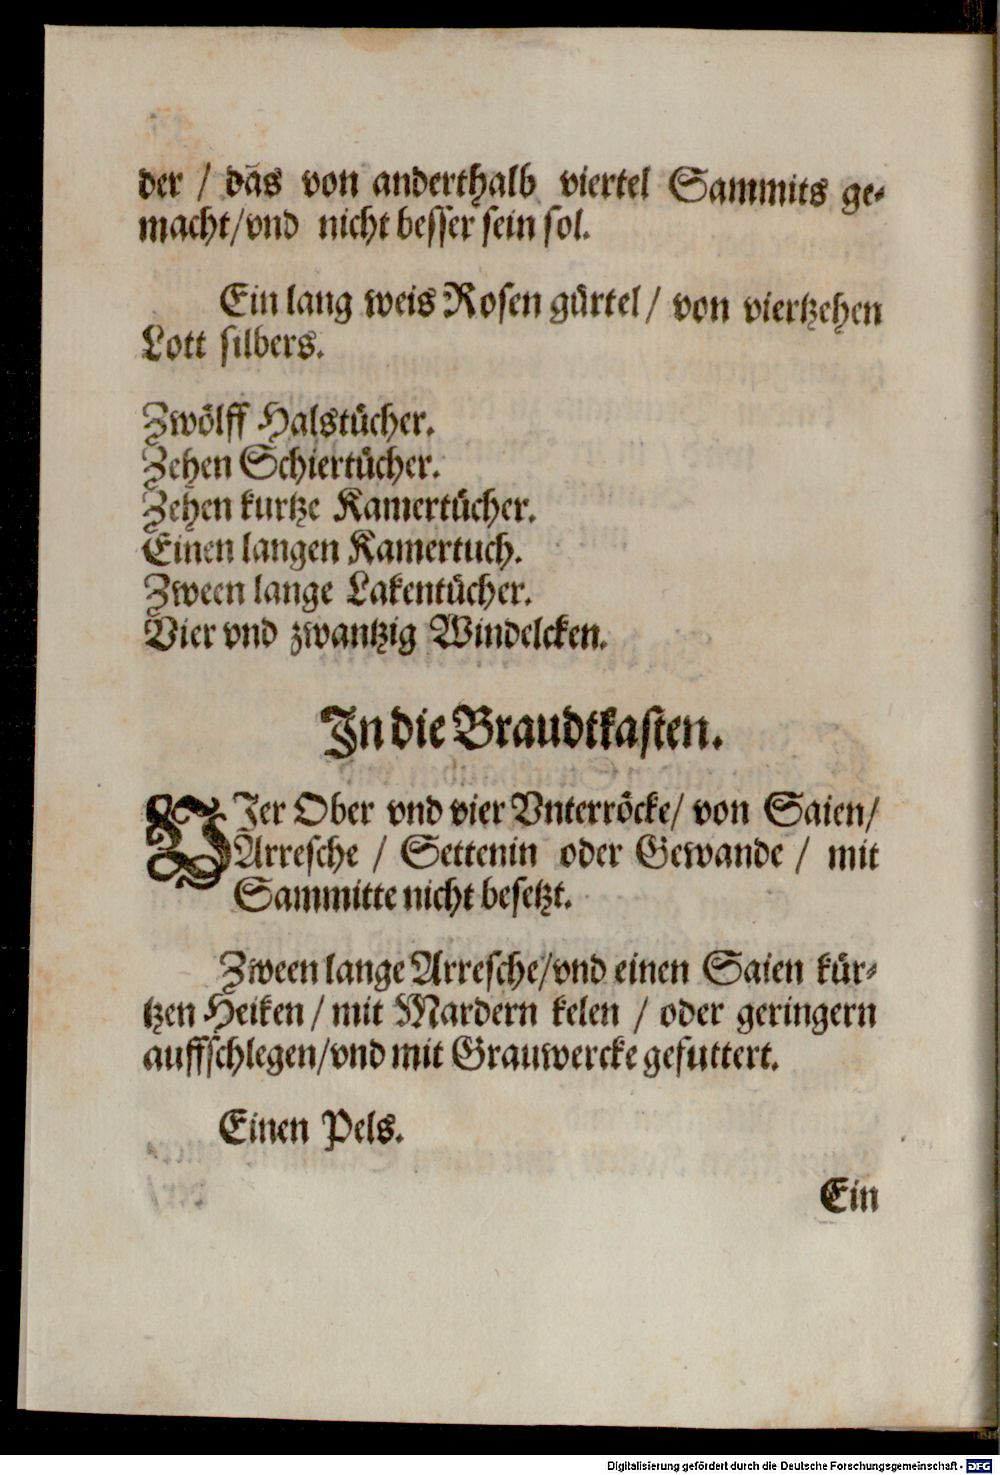 der / das von anderthalb viertel Sammits ge-
macht/vnd nicht besser sein sol.
Ein lang weis Rosen gürtel / von viertzehen
Lott silbers.
Zwölff Halstücher.
Zehen Schiertücher.
Zehen kurtze Kamertücher.
Einen langen Kamertuch.
Zween lange Lakentücher.
Vier vnd zwantzig Windelcken.
In die Braudtkasten.
VIer Ober vnd vier Vnterröcke/ von Saien/
Arresche / Settenin oder Gewande / mit
Sammitte nicht besetzt.
Zween lange Arresche/vnd einen Saien kür-
tzen Heiken / mit Mardern kelen / oder geringern
auffschlegen/vnd mit Grauwercke gefuttert.
Einen Pels.
Ein
Digitalisierung gefördert durch die Deutsche Forschungsgemeinschaft - DFG